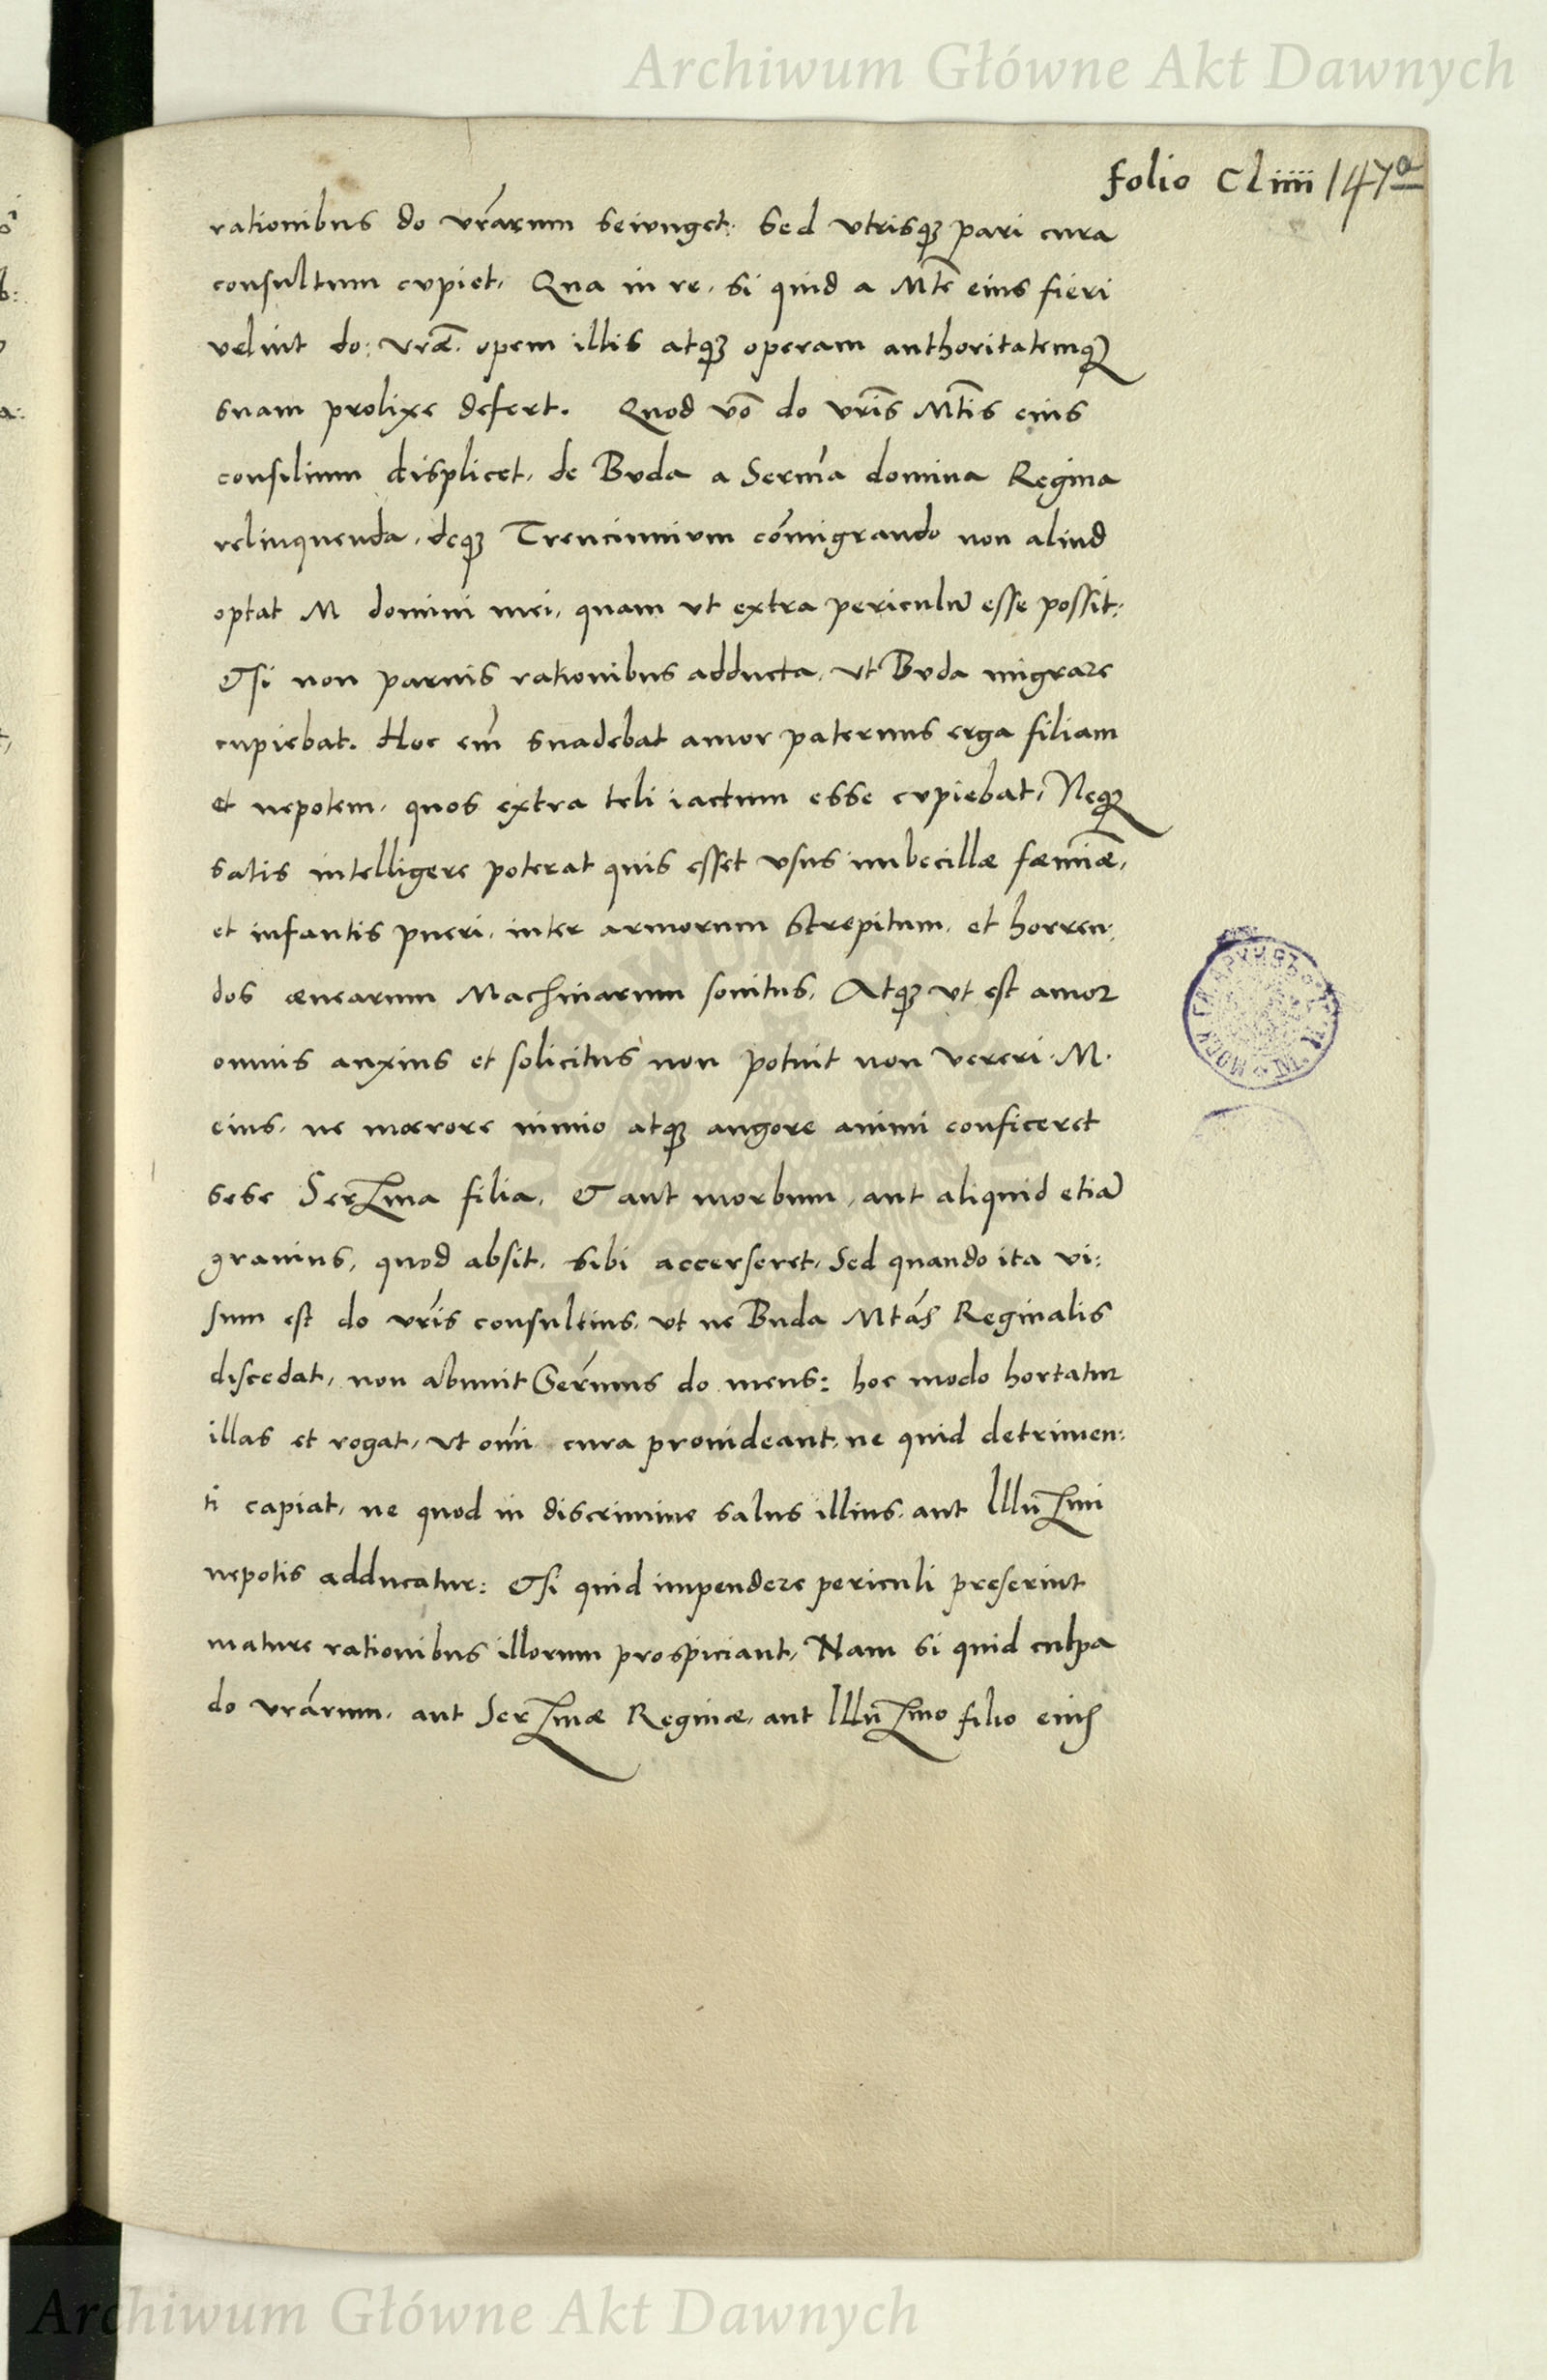 Archiwum Główne Akt Dawnych
folio Cliiii 147a
rationibus do vrarum seiunget. Sed vtrisq3 pari cura
consultum cupiet, Qua in re, si quid a Mte eius fieri
velint do: vrae. opem illis atq3 operam authoritatemq3
suam prolixe defert. Quod vo do vris Mtis eius
consilium displicet, de Buda a Serma domina Regina
relinquenda, deq3 Trencinnium comigrando non aliud
optat M domini mei, quam vt extra periculu esse possit:
Etsi non paruis rationibus adducta, vt Buda migrare
cupiebat. Hoc em suadebat amor paternus erga filiam
et nepotem, quos extra teli iactum esse cupiebat, Neq3
satis intelligere poterat quis esset vsus imbecillæ fæminæ,
et infantis pueri, inter armorum strepitum, et horren:
dos ænearum Machinarum sonitus, Atq3 vt est amor
omnis anxius et solicitus non potuit non vereri. M.
eius, ne mœrore nimio atq3 angore animi conficeret
sese Serma filia, & aut morbum, aut aliquid etia
grauius, quod absit, sibi accerseret, Sed quando ita vi:
sum est do vris consultius, vt ne Buda Mtas Reginalis
discedat, non abnuit Sermus do meus: hoc modo hortatur
illas et rogat, vt omi cura prouideant, ne quid detrimen:
ti capiat, ne quod in discrimine salus illius, aut Illumi
nepotis adducatur: Etsi quid impendere periculi preserint
mature rationibus illorum prospiciant, Nam si quid culpa
do vrarum, aut Sermæ Reginæ, aut Illumo filio eius
Archiwum Główne Akt Dawnych